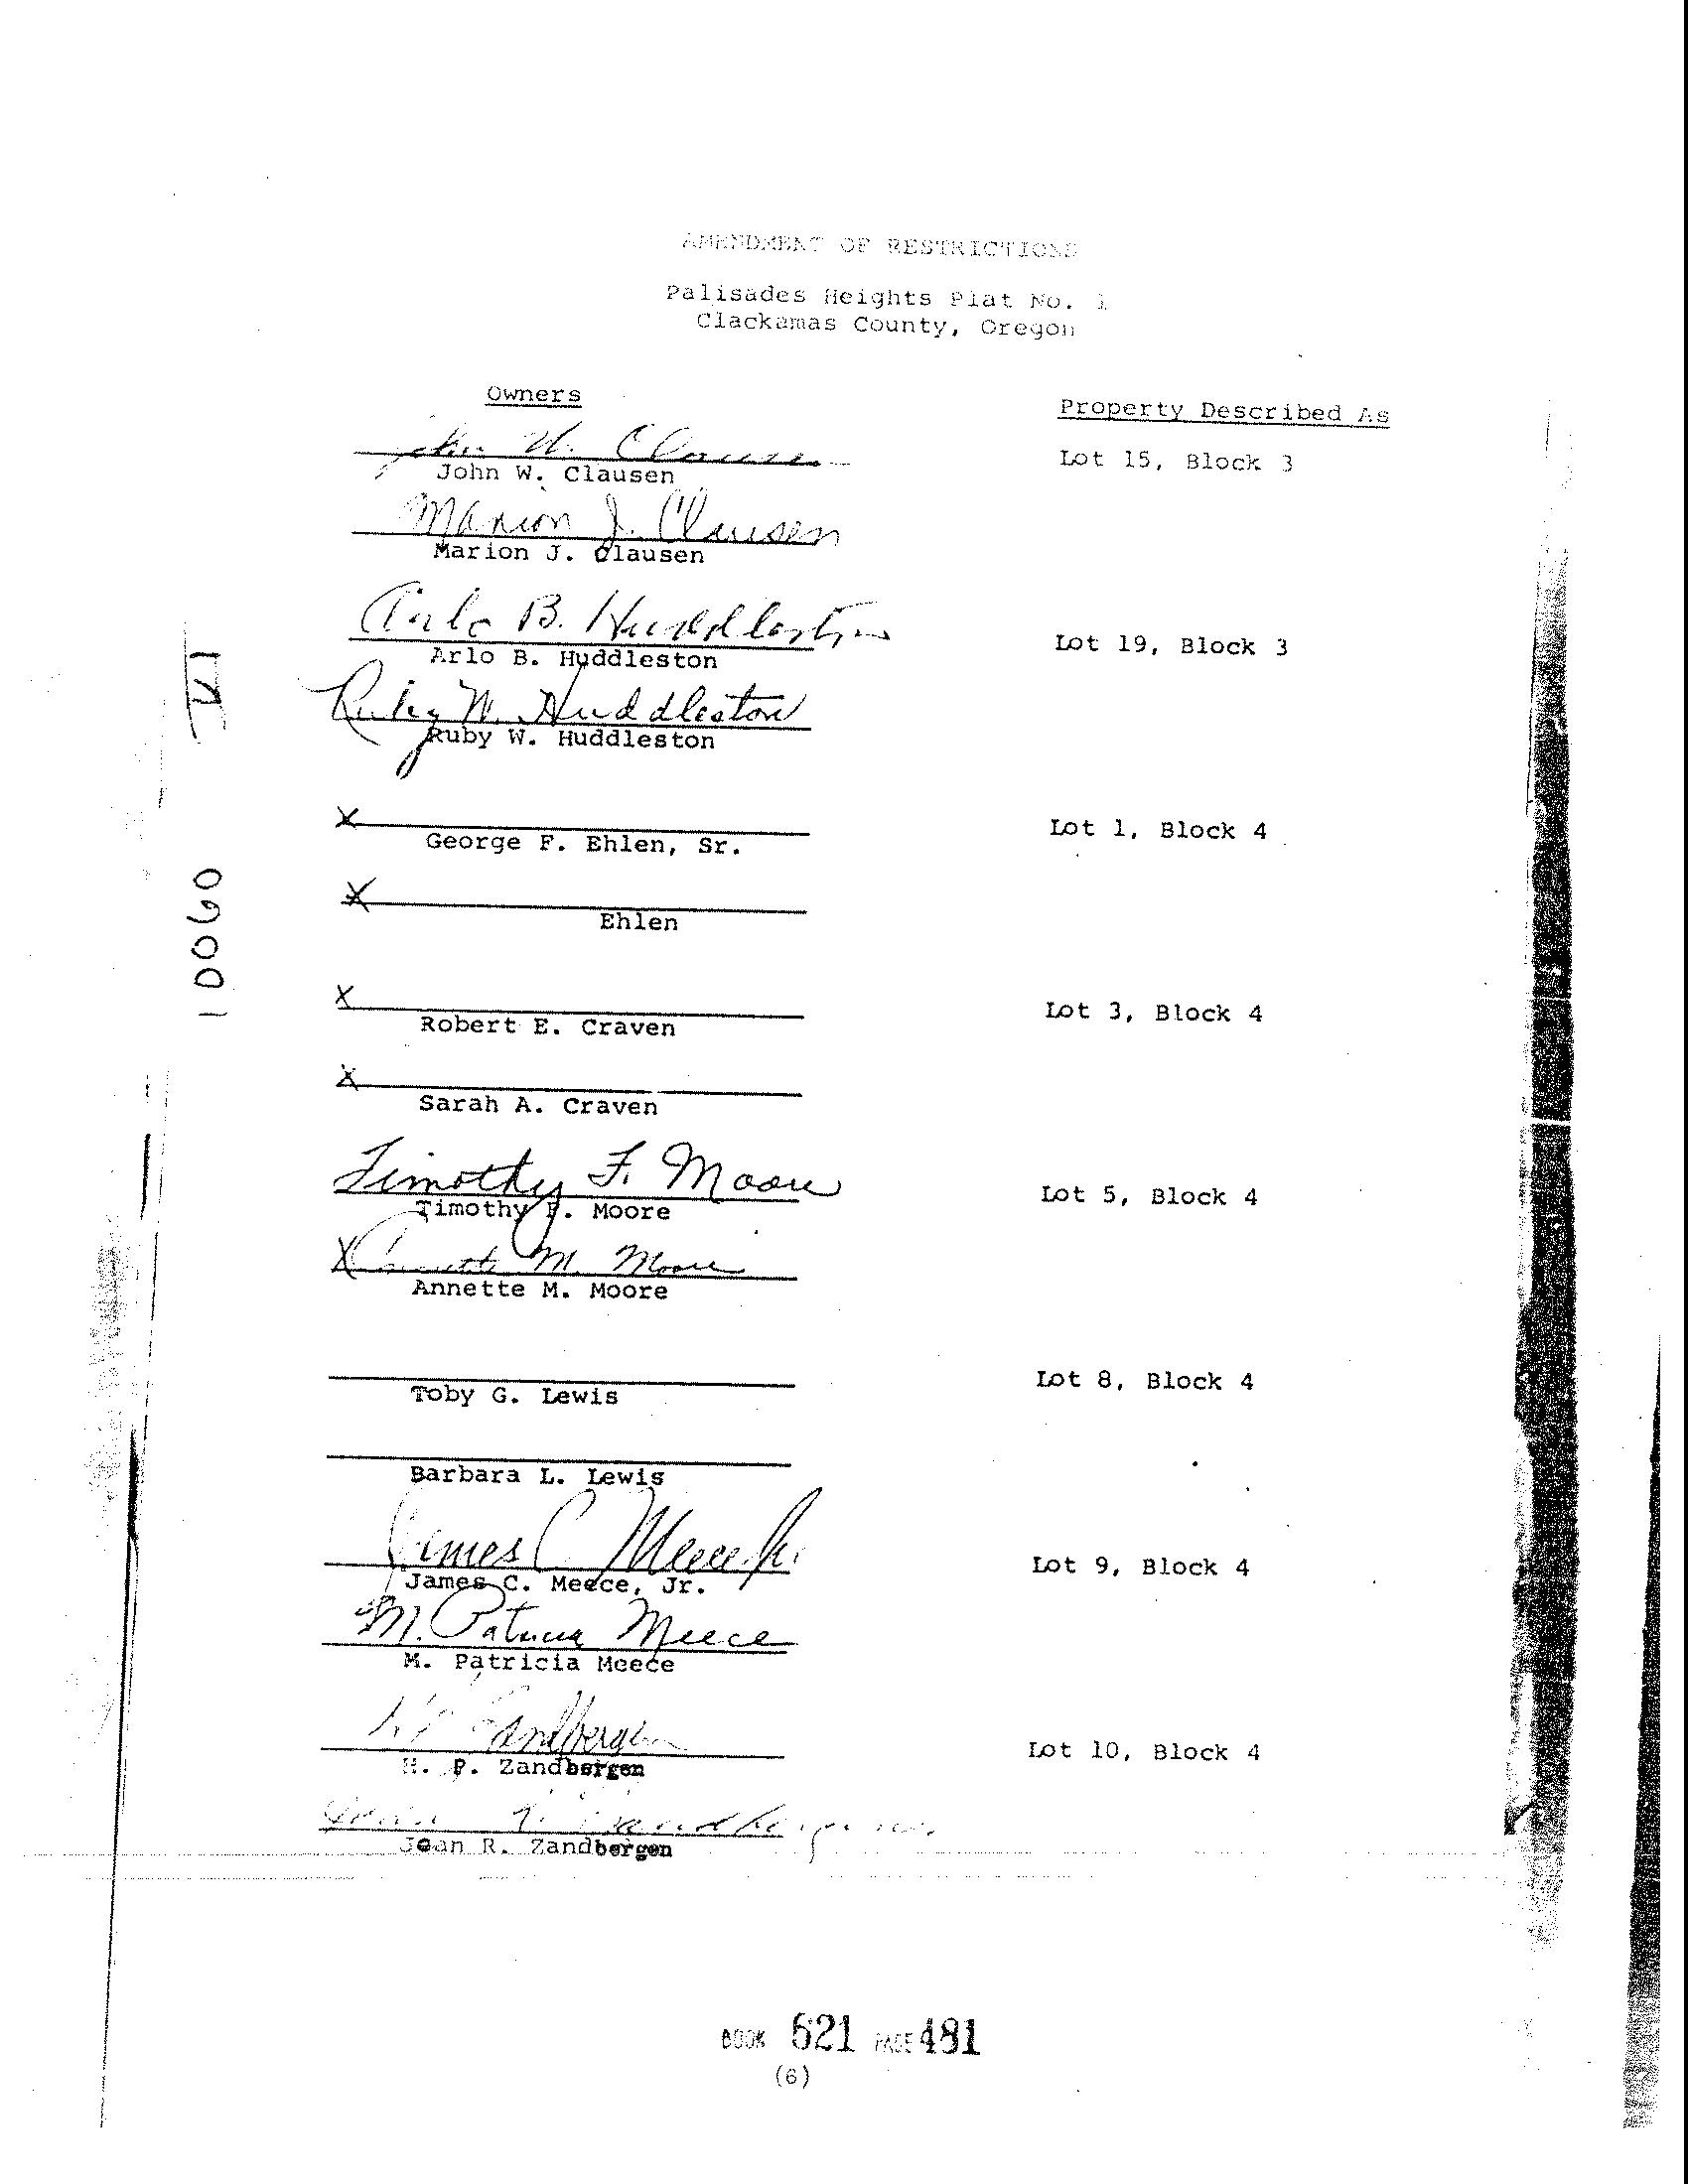 AMENDMENT OF RESTRICTIONS
Palisades Heights Plat No. 1
Clackamas County, Oregon
Owners
Property Described As
John W. Clausen
Lot 15, Block 3
John W. Clausen
Marion J. Clausen
Marion J. Clausen
Arlo B. Huddleston
Lot 19, Block 3
Arlo B. Huddleston
Ruby W. Huddleston
Ruby W. Huddleston
X
Lot 1, Block 4
George F. Ehlen, Sr.
X
Ehlen
X
Lot 3, Block 4
Robert E. Craven
X
Sarah A. Craven
Timothy F. Moore
Lot 5, Block 4
Timothy F. Moore
X Annette M. Moore
Annette M. Moore
Lot 8, Block 4
Toby G. Lewis
Barbara L. Lewis
James C Meece Jr.
Lot 9, Block 4
James C. Meece, Jr.
M. Patricia Meece
M. Patricia Meece
H P Zandbergen
Lot 10, Block 4
H. P. Zandbergen
Joan R. Zandbergen
Joan R. Zandbergen
10060
BOOK 621 PAGE 481
(6)